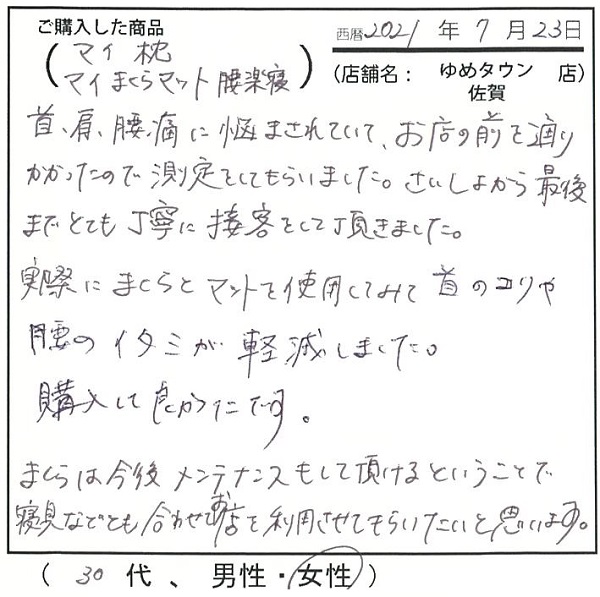 ご購入した商品
(マイ枕
マイまくらマット 腰楽寝)
西暦2021年7月23日
(店舗名: ゆめタウン佐賀 店)
首、肩、腰、痛に悩まされていて、お店の前を通り
かかったので測定をしてもらいました。さいしょから最後
までとても丁寧に接客をして頂きました。
実際にまくらとマットを使用してみて首のコリや
腰のイタミが軽減しました。
購入して良かったです。
まくらは今後メンテナンスもして頂けるということで
寝具などとも合わせてお店を利用させてもらいたいと思います。
(30代、男性・女性)